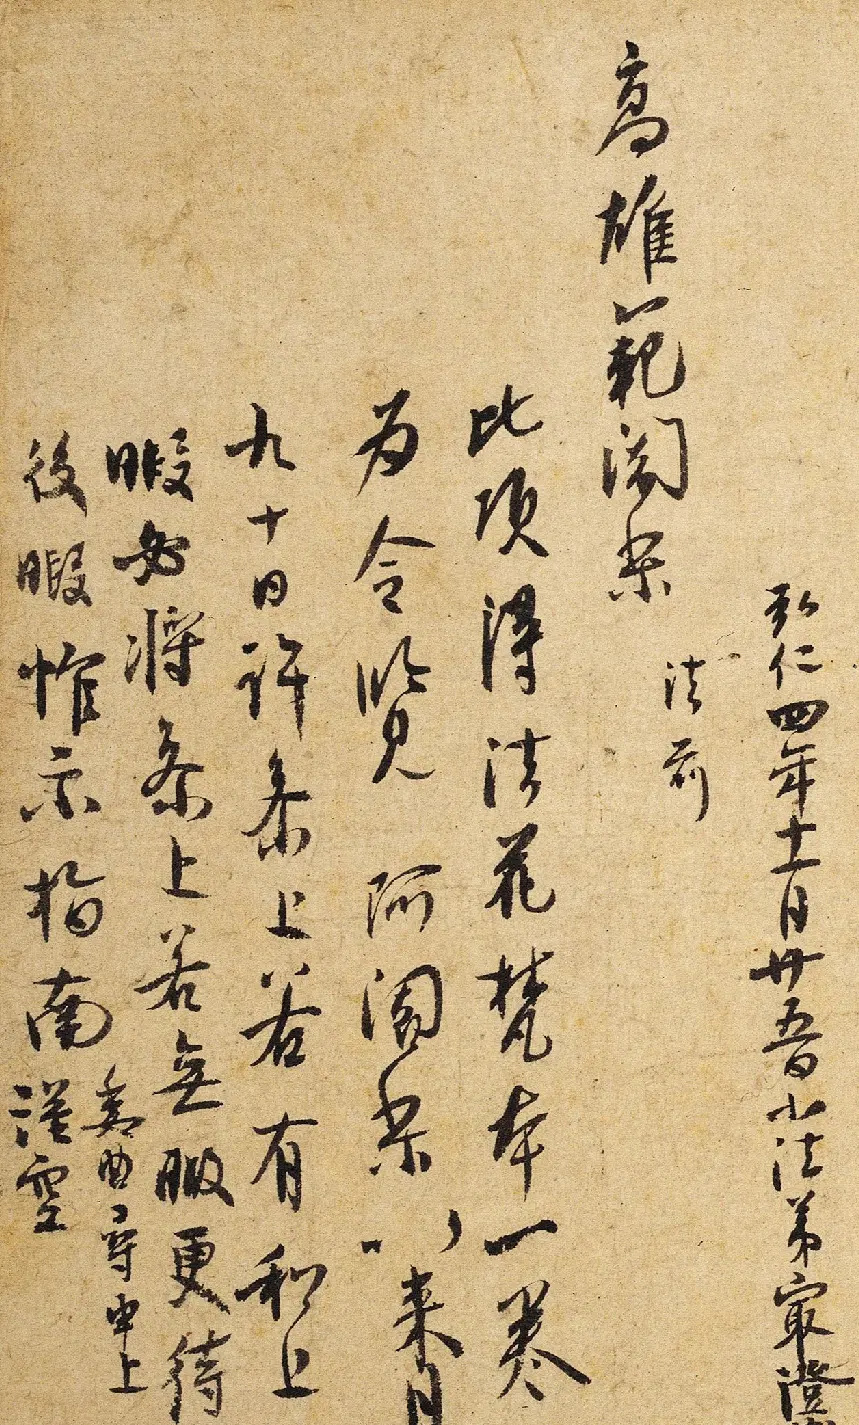 弘仁四年十一月廿五日小法弟最澄
高雄範闍梨 法前
此頃得法花梵本一巻
為令覧阿闍梨以来月
九十日許参上若有和上
暇必将参上若無暇更待
後暇惟示指南
委曲尋申上
謹空